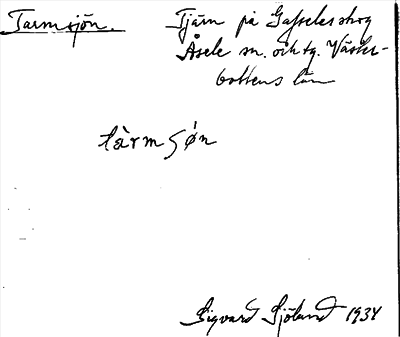 Tarmsjön. Tjärn på Gafseleskog
Åsele sn. och tg. Väster-
bottens län
tàrmʂø̀n
Sigvard Sjölund 1934